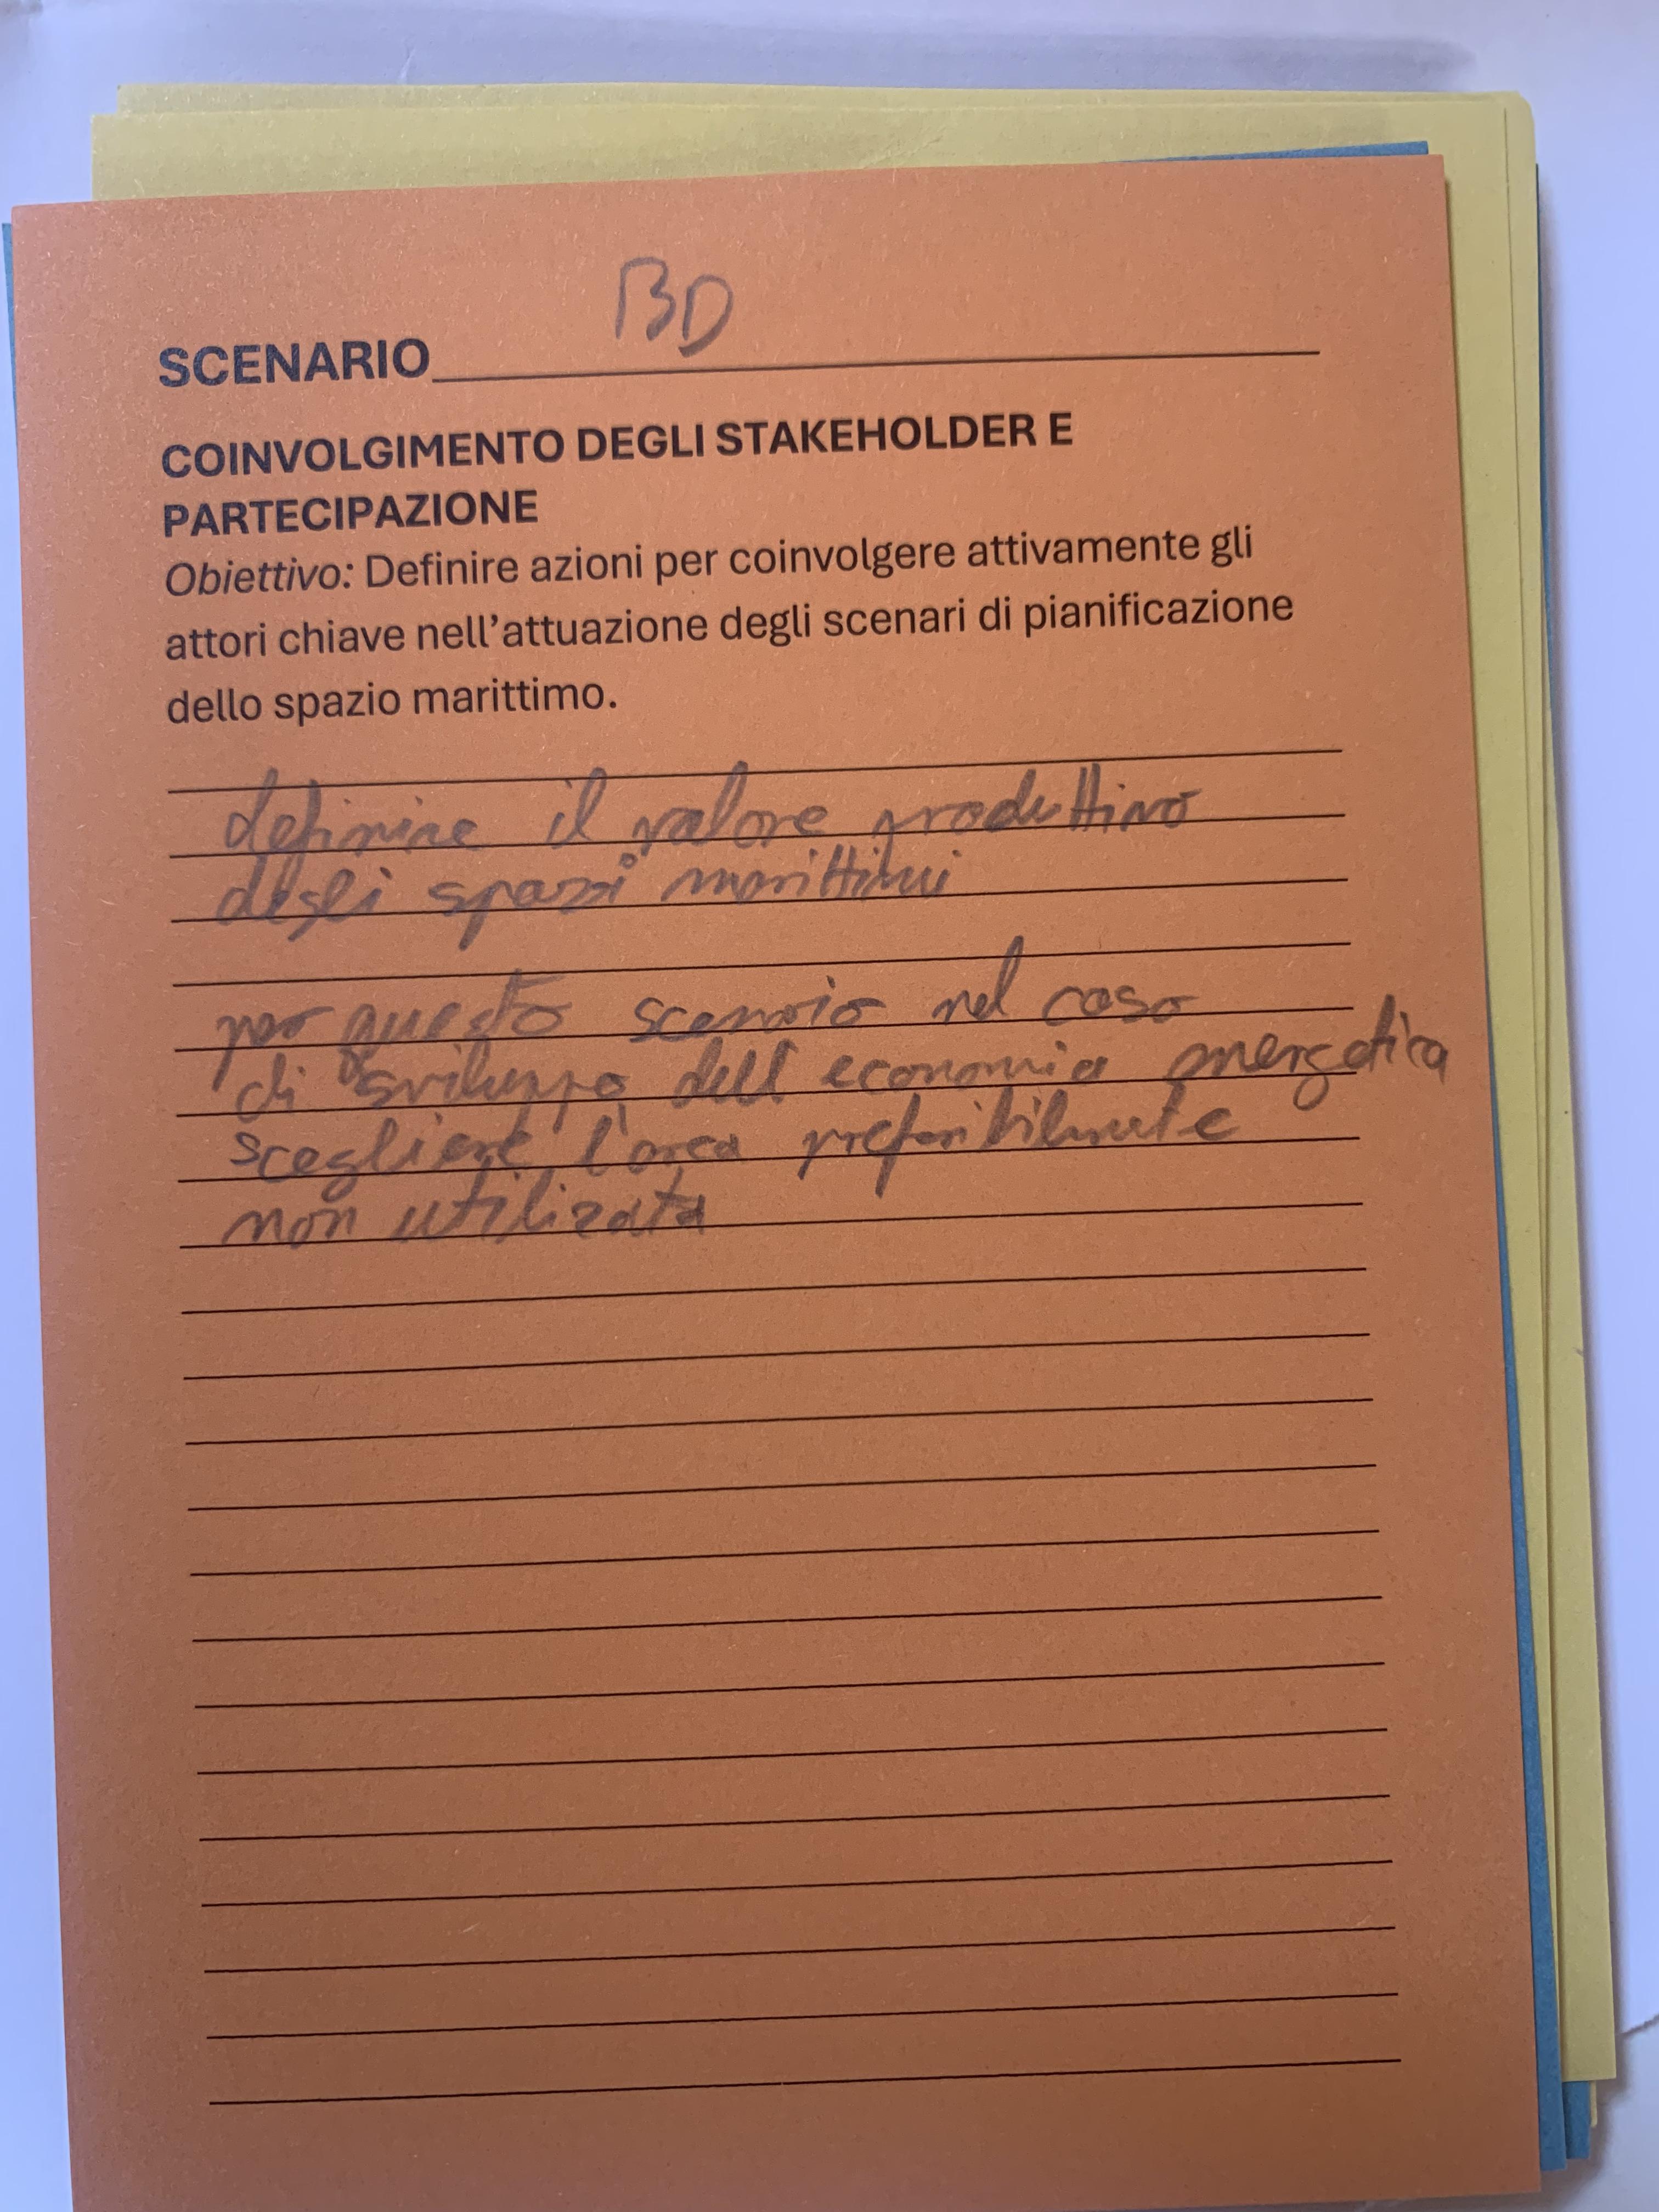 SCENARIO BD
COINVOLGIMENTO DEGLI STAKEHOLDER E
PARTECIPAZIONE
Obiettivo: Definire azioni per coinvolgere attivamente gli
attori chiave nell'attuazione degli scenari di pianificazione
dello spazio marittimo.
definire il valore produttivo
degli spazi marittimi
per questo scenario nel caso
di sviluppo dell economia energetica
scegliere l'area preferibilmente
non utilizata